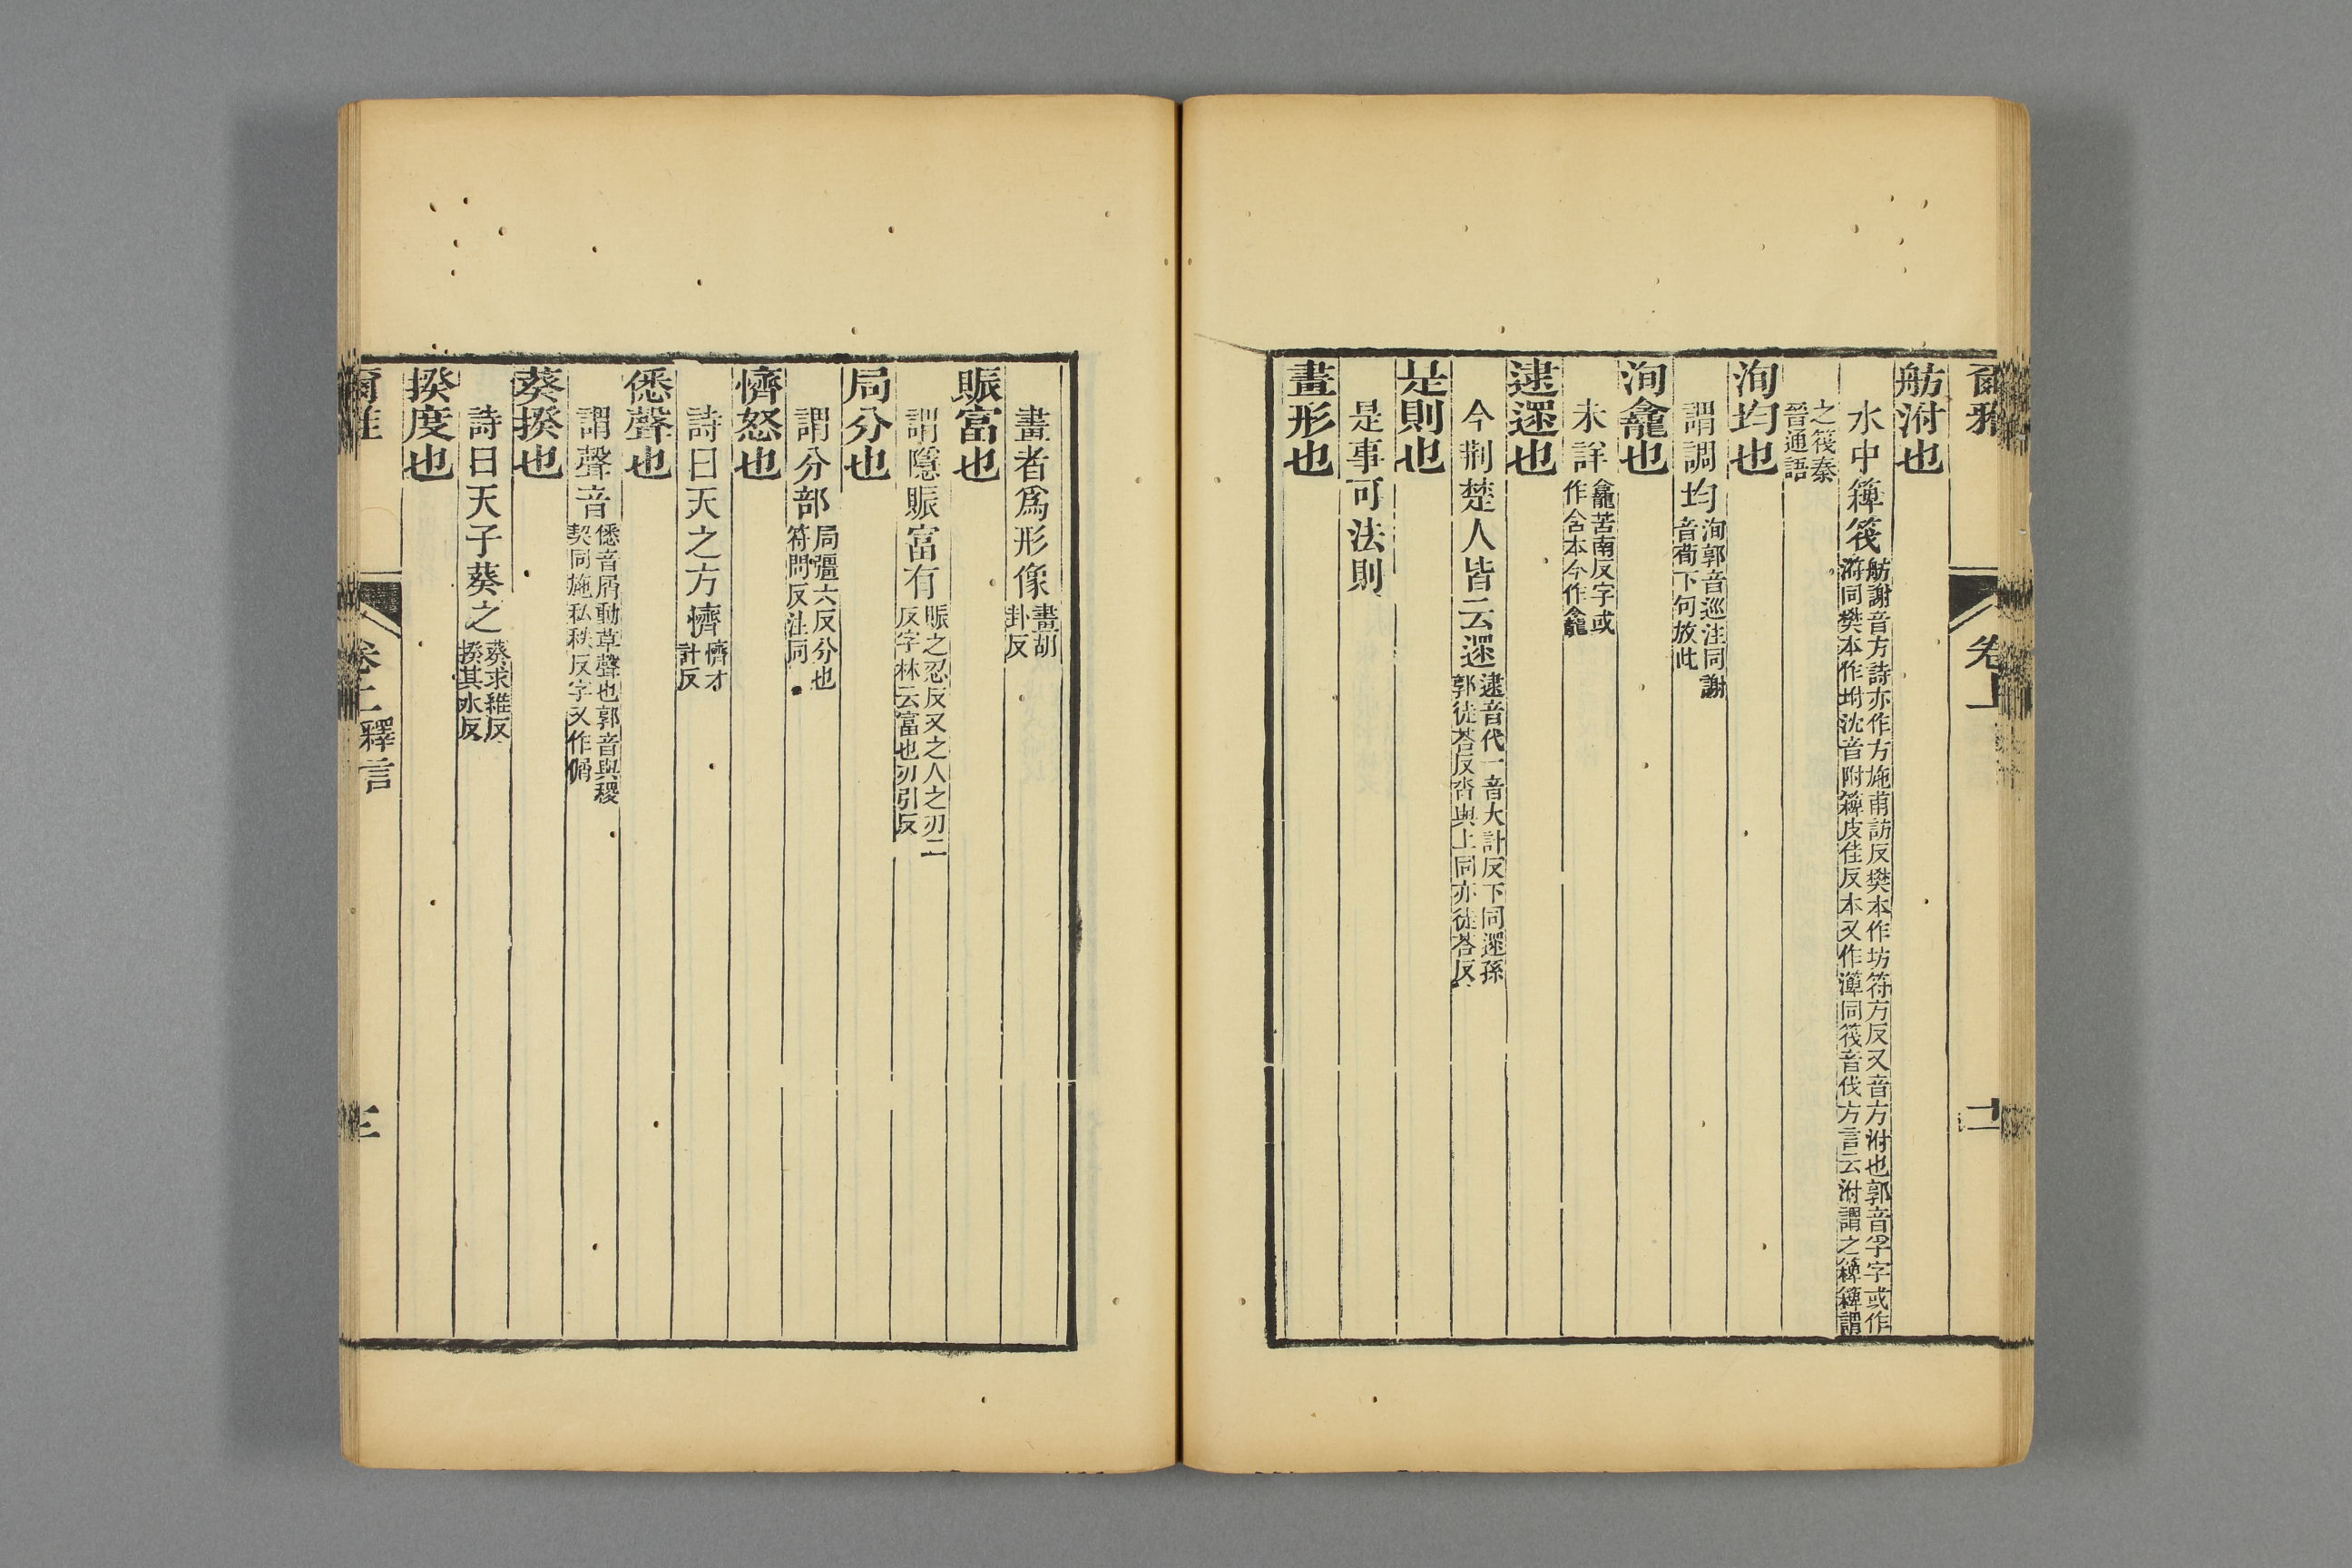 爾雅 卷上
舫泭也
水中𥴖筏舫謝音方詩亦作方施甫訪反樊本作坊符方反又音方泭也郭音孚字或作
㳇同樊本作坿沈音附𥴖皮佳反本又作𥱼同筏音伐方言云泭謂之𥴖𥴖謂
之筏秦
晉通語
洵均也
謂調均洵郭音巡注同謝
音荀下句放此
洵龕也
未詳龕苦南反字或
作含本今作龕
逮遝也
今荆楚人皆云遝逮音代一音大計反下同遝孫
郭徒荅反沓與上同亦徒荅反
是則也
是事可法則
畫形也
畫者爲形像畫胡
卦反
賑富也
謂隱賑富有賑之忍反又之人之刃二
反字林云富也刃引反
局分也
謂分部局彊六反分也
符問反注同
懠怒也
詩曰天之方懠懠才
計反
僁聲也
謂聲音僁音屑動草聲也郭音與稷
契同施私秩反字又作㑛
葵揆也
詩曰天子葵之葵求維反
揆其水反
揆度也
爾雅 卷上釋言